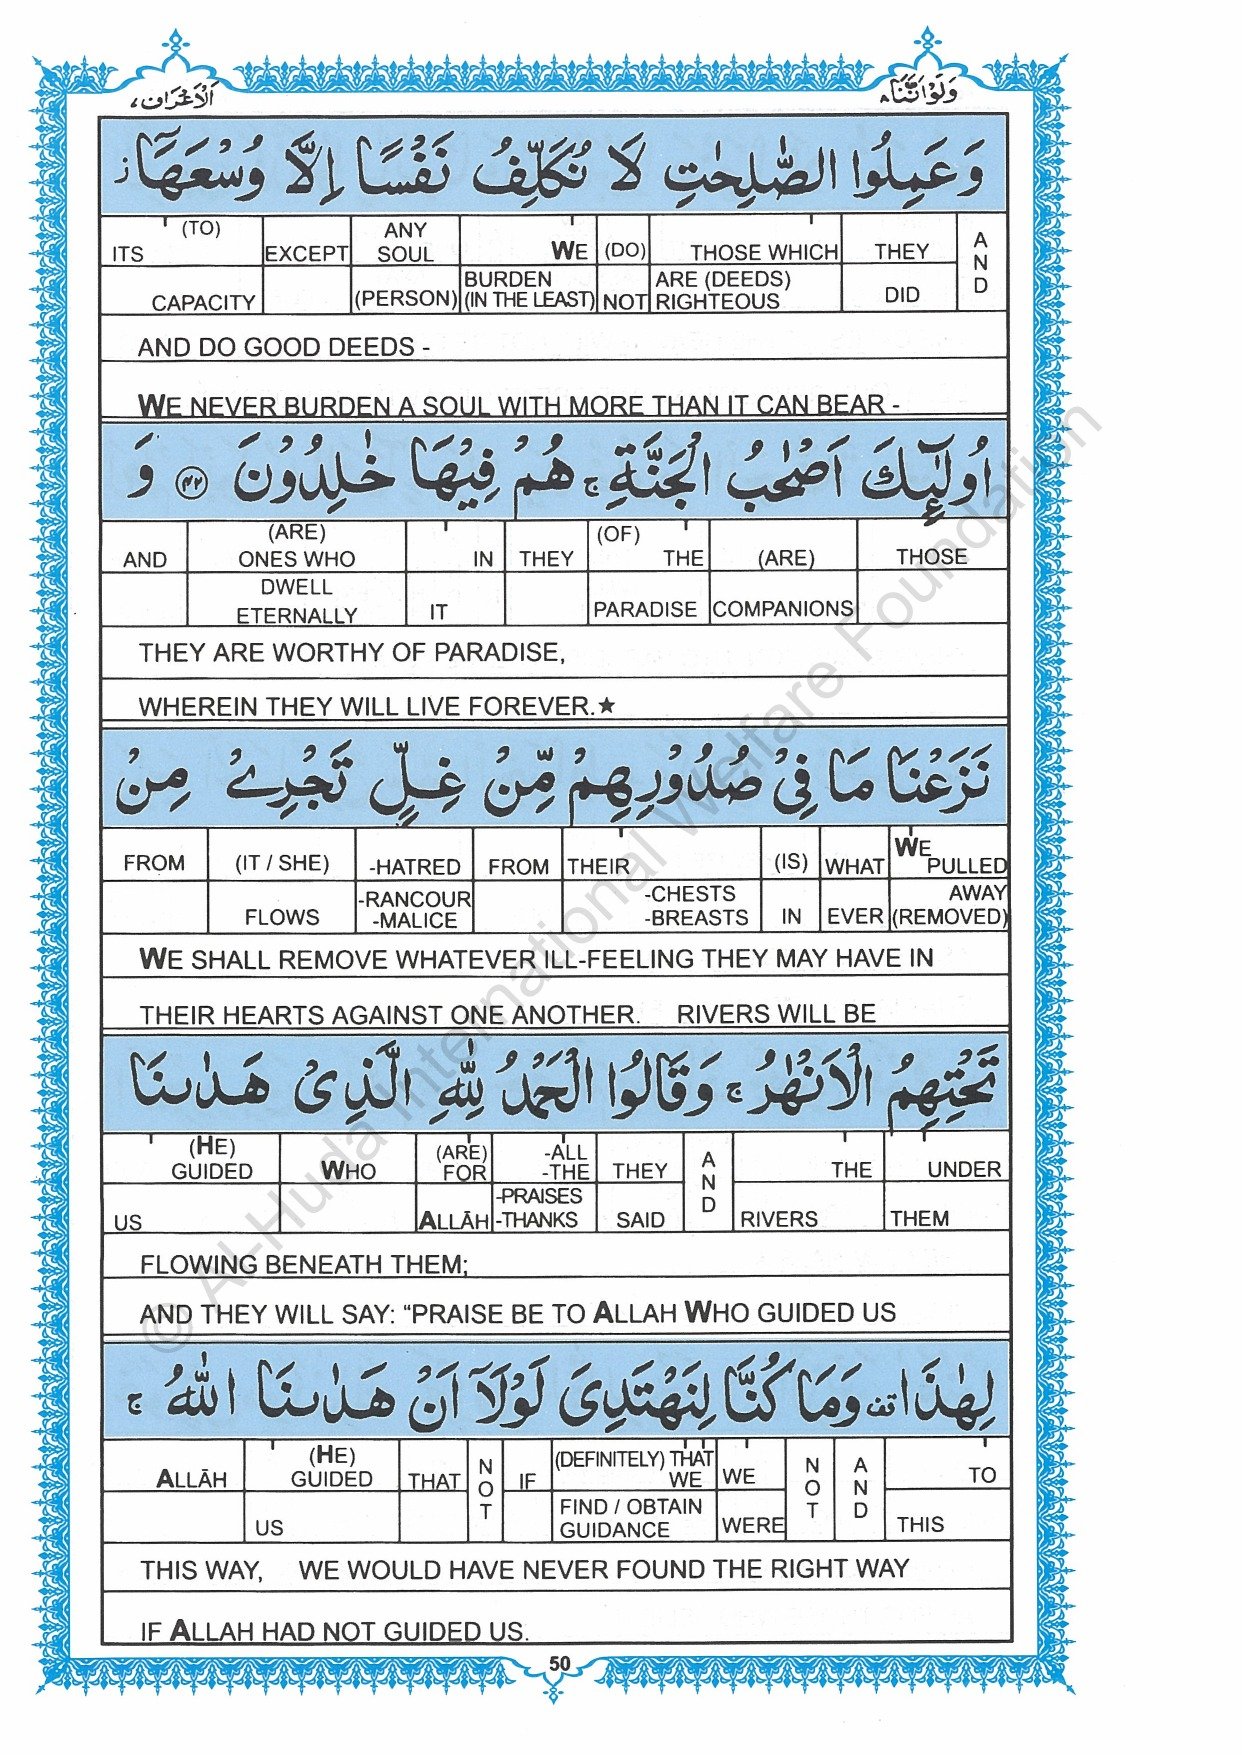 وَلَوْاَنَّنَا ٨ اَلْاَعْرَاف ٧
وَعَمِلُوا الصّٰلِحٰتِ لَا نُكَلِّفُ نَفْسًا اِلَّا وُسْعَهَاۤ ز
ITS (TO) CAPACITY | EXCEPT | ANY SOUL (PERSON) | WE BURDEN (IN THE LEAST) | (DO) NOT | THOSE WHICH ARE (DEEDS) RIGHTEOUS | THEY DID | AND
AND DO GOOD DEEDS -
WE NEVER BURDEN A SOUL WITH MORE THAN IT CAN BEAR -
اُولٰٓئِكَ اَصْحٰبُ الْجَنَّةِ ج هُمْ فِيْهَا خٰلِدُوْنَ ﴿٤٢﴾ وَ
AND | (ARE) ONES WHO DWELL ETERNALLY | IN IT | THEY | (OF) THE PARADISE | (ARE) COMPANIONS | THOSE
THEY ARE WORTHY OF PARADISE,
WHEREIN THEY WILL LIVE FOREVER.★
نَزَعْنَا مَا فِيْ صُدُوْرِهِمْ مِّنْ غِلٍّ تَجْرِيْ مِنْ
FROM | (IT / SHE) FLOWS | -HATRED -RANCOUR -MALICE | FROM | THEIR -CHESTS -BREASTS | (IS) IN | WHAT EVER | WE PULLED AWAY (REMOVED)
WE SHALL REMOVE WHATEVER ILL-FEELING THEY MAY HAVE IN
THEIR HEARTS AGAINST ONE ANOTHER. RIVERS WILL BE
تَحْتِهِمُ الْاَنْهٰرُ ج وَقَالُوا الْحَمْدُ لِلّٰهِ الَّذِيْ هَدٰىنَا
(HE) GUIDED US | WHO | (ARE) FOR ALLĀH | -ALL -THE -PRAISES -THANKS | THEY SAID | AND | THE RIVERS | UNDER THEM
FLOWING BENEATH THEM;
AND THEY WILL SAY: “PRAISE BE TO ALLAH WHO GUIDED US
لِهٰذَا قف وَمَا كُنَّا لِنَهْتَدِيَ لَوْلَاۤ اَنْ هَدٰىنَا اللّٰهُ ج
ALLĀH | (HE) GUIDED US | THAT | NOT | IF | (DEFINITELY) THAT WE FIND / OBTAIN GUIDANCE | WE WERE | NOT | AND | TO THIS
THIS WAY, WE WOULD HAVE NEVER FOUND THE RIGHT WAY
IF ALLAH HAD NOT GUIDED US.
50
© Al-Huda International Welfare Foundation